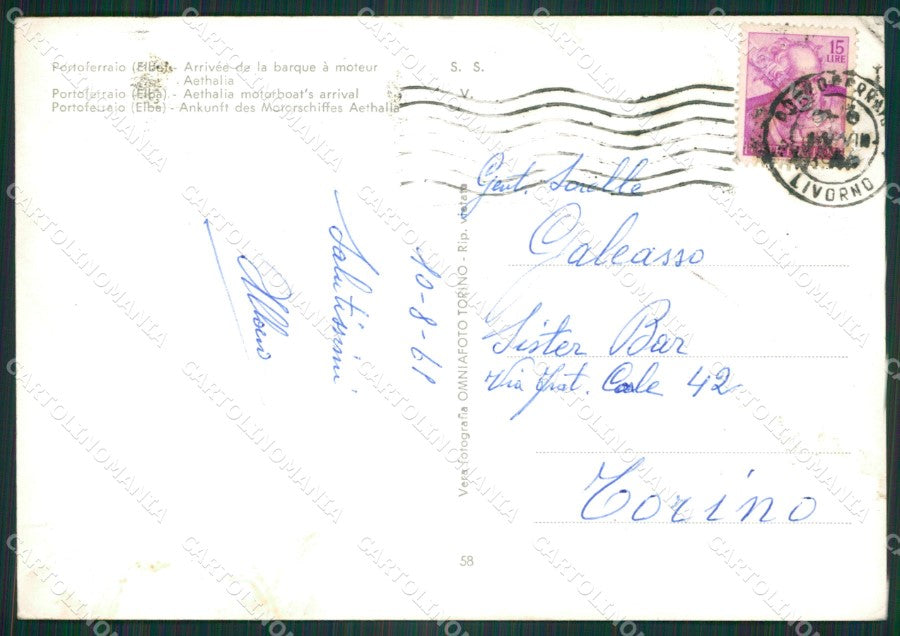 Portoferraio (Elba) - Arrivée de la barque à moteur
Aethalia
Portoferraio (Elba) - Aethalia motorboat's arrival
Portoferraio (Elba) - Ankunft des Motorschiffes Aethalia
S. S.
V.
15
LIRE
LIVORNO
10-8-61
Salutissimi
Vera fotografia OMNIAFOTO TORINO - Rip. vietata
Gent. Sorelle
Galeasso
Sister Bar
Via Frat. Carle 42
Torino
58
CARTOLINOMANIA